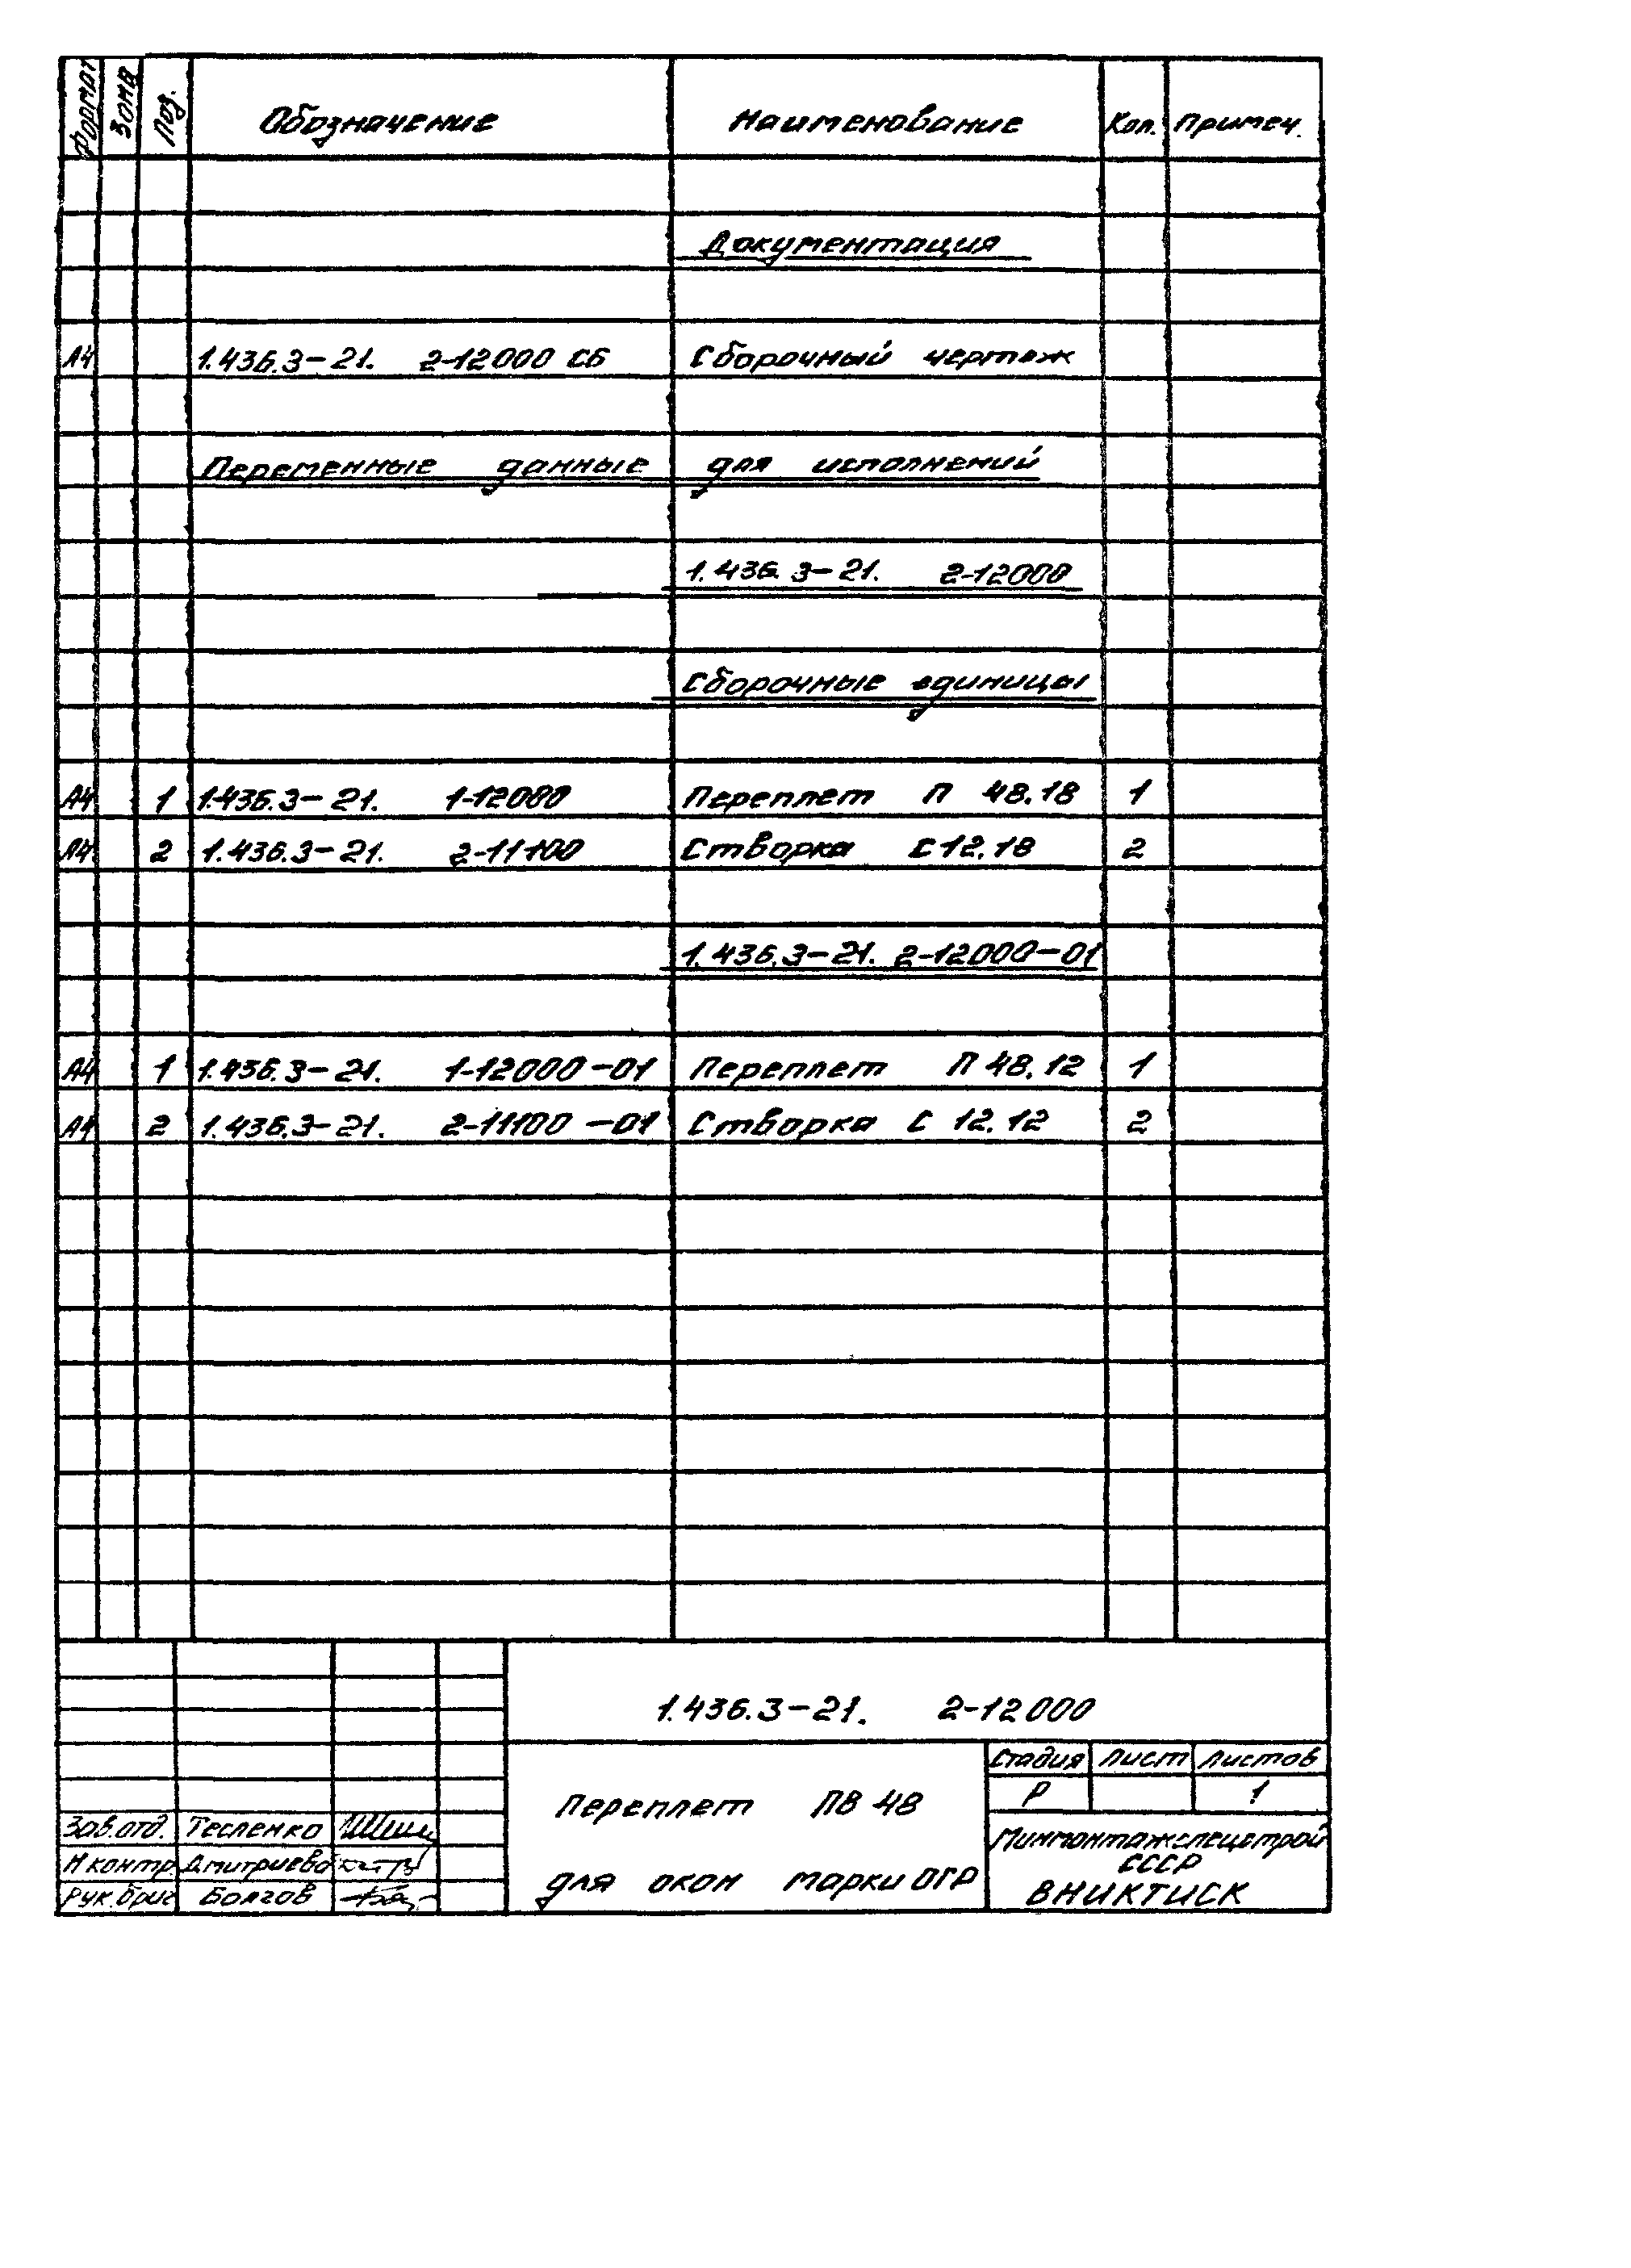 Формат Зона Поз. Обозначение Наименование Кол. Примеч.
Документация
А4 1.436.3-21. 2-12000 СБ Сборочный чертеж
Переменные данные для исполнений
1.436.3-21. 2-12000
Сборочные единицы
А4 1 1.436.3-21. 1-12000 Переплет П 48.18 1
А4 2 1.436.3-21. 2-11100 Створка С 12.18 2
1.436.3-21. 2-12000-01
А4 1 1.436.3-21. 1-12000-01 Переплет П 48.12 1
А4 2 1.436.3-21. 2-11100-01 Створка С 12.12 2
1.436.3-21. 2-12000
Переплет ПВ 48
для окон марки ОГР
Стадия Лист Листов
Р 1
Минмонтажспецстрой
СССР
ВНИКТИСК
Зав.отд. Тесленко
Н контр. Дмитриева
Рук.бриг Болгов